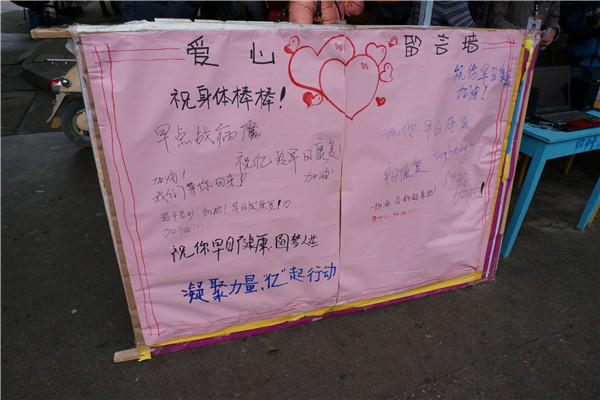 爱心 留言墙
祝身体棒棒！
早点战病魔
祝忆龄早日康复！
加油！
加油！
我们等你回来！
加油!!!
祝你早日健康，圆梦人生
凝聚力量，“忆”起行动
祝你早日康复
加油！
祝你早日康复
早日康复
加油，会好起来的！
加油!!!